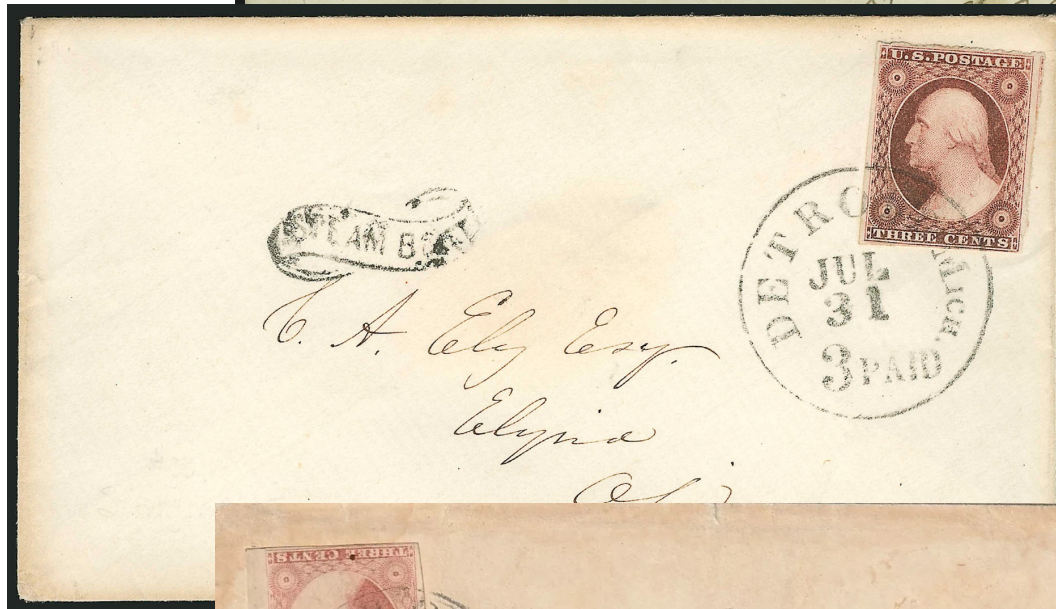 U.S. POSTAGE
THREE CENTS
STEAM BOAT
DETROIT MICH.
JUL
31
3 PAID
C. A. Ely Esq.
Elyria
THREE CENTS